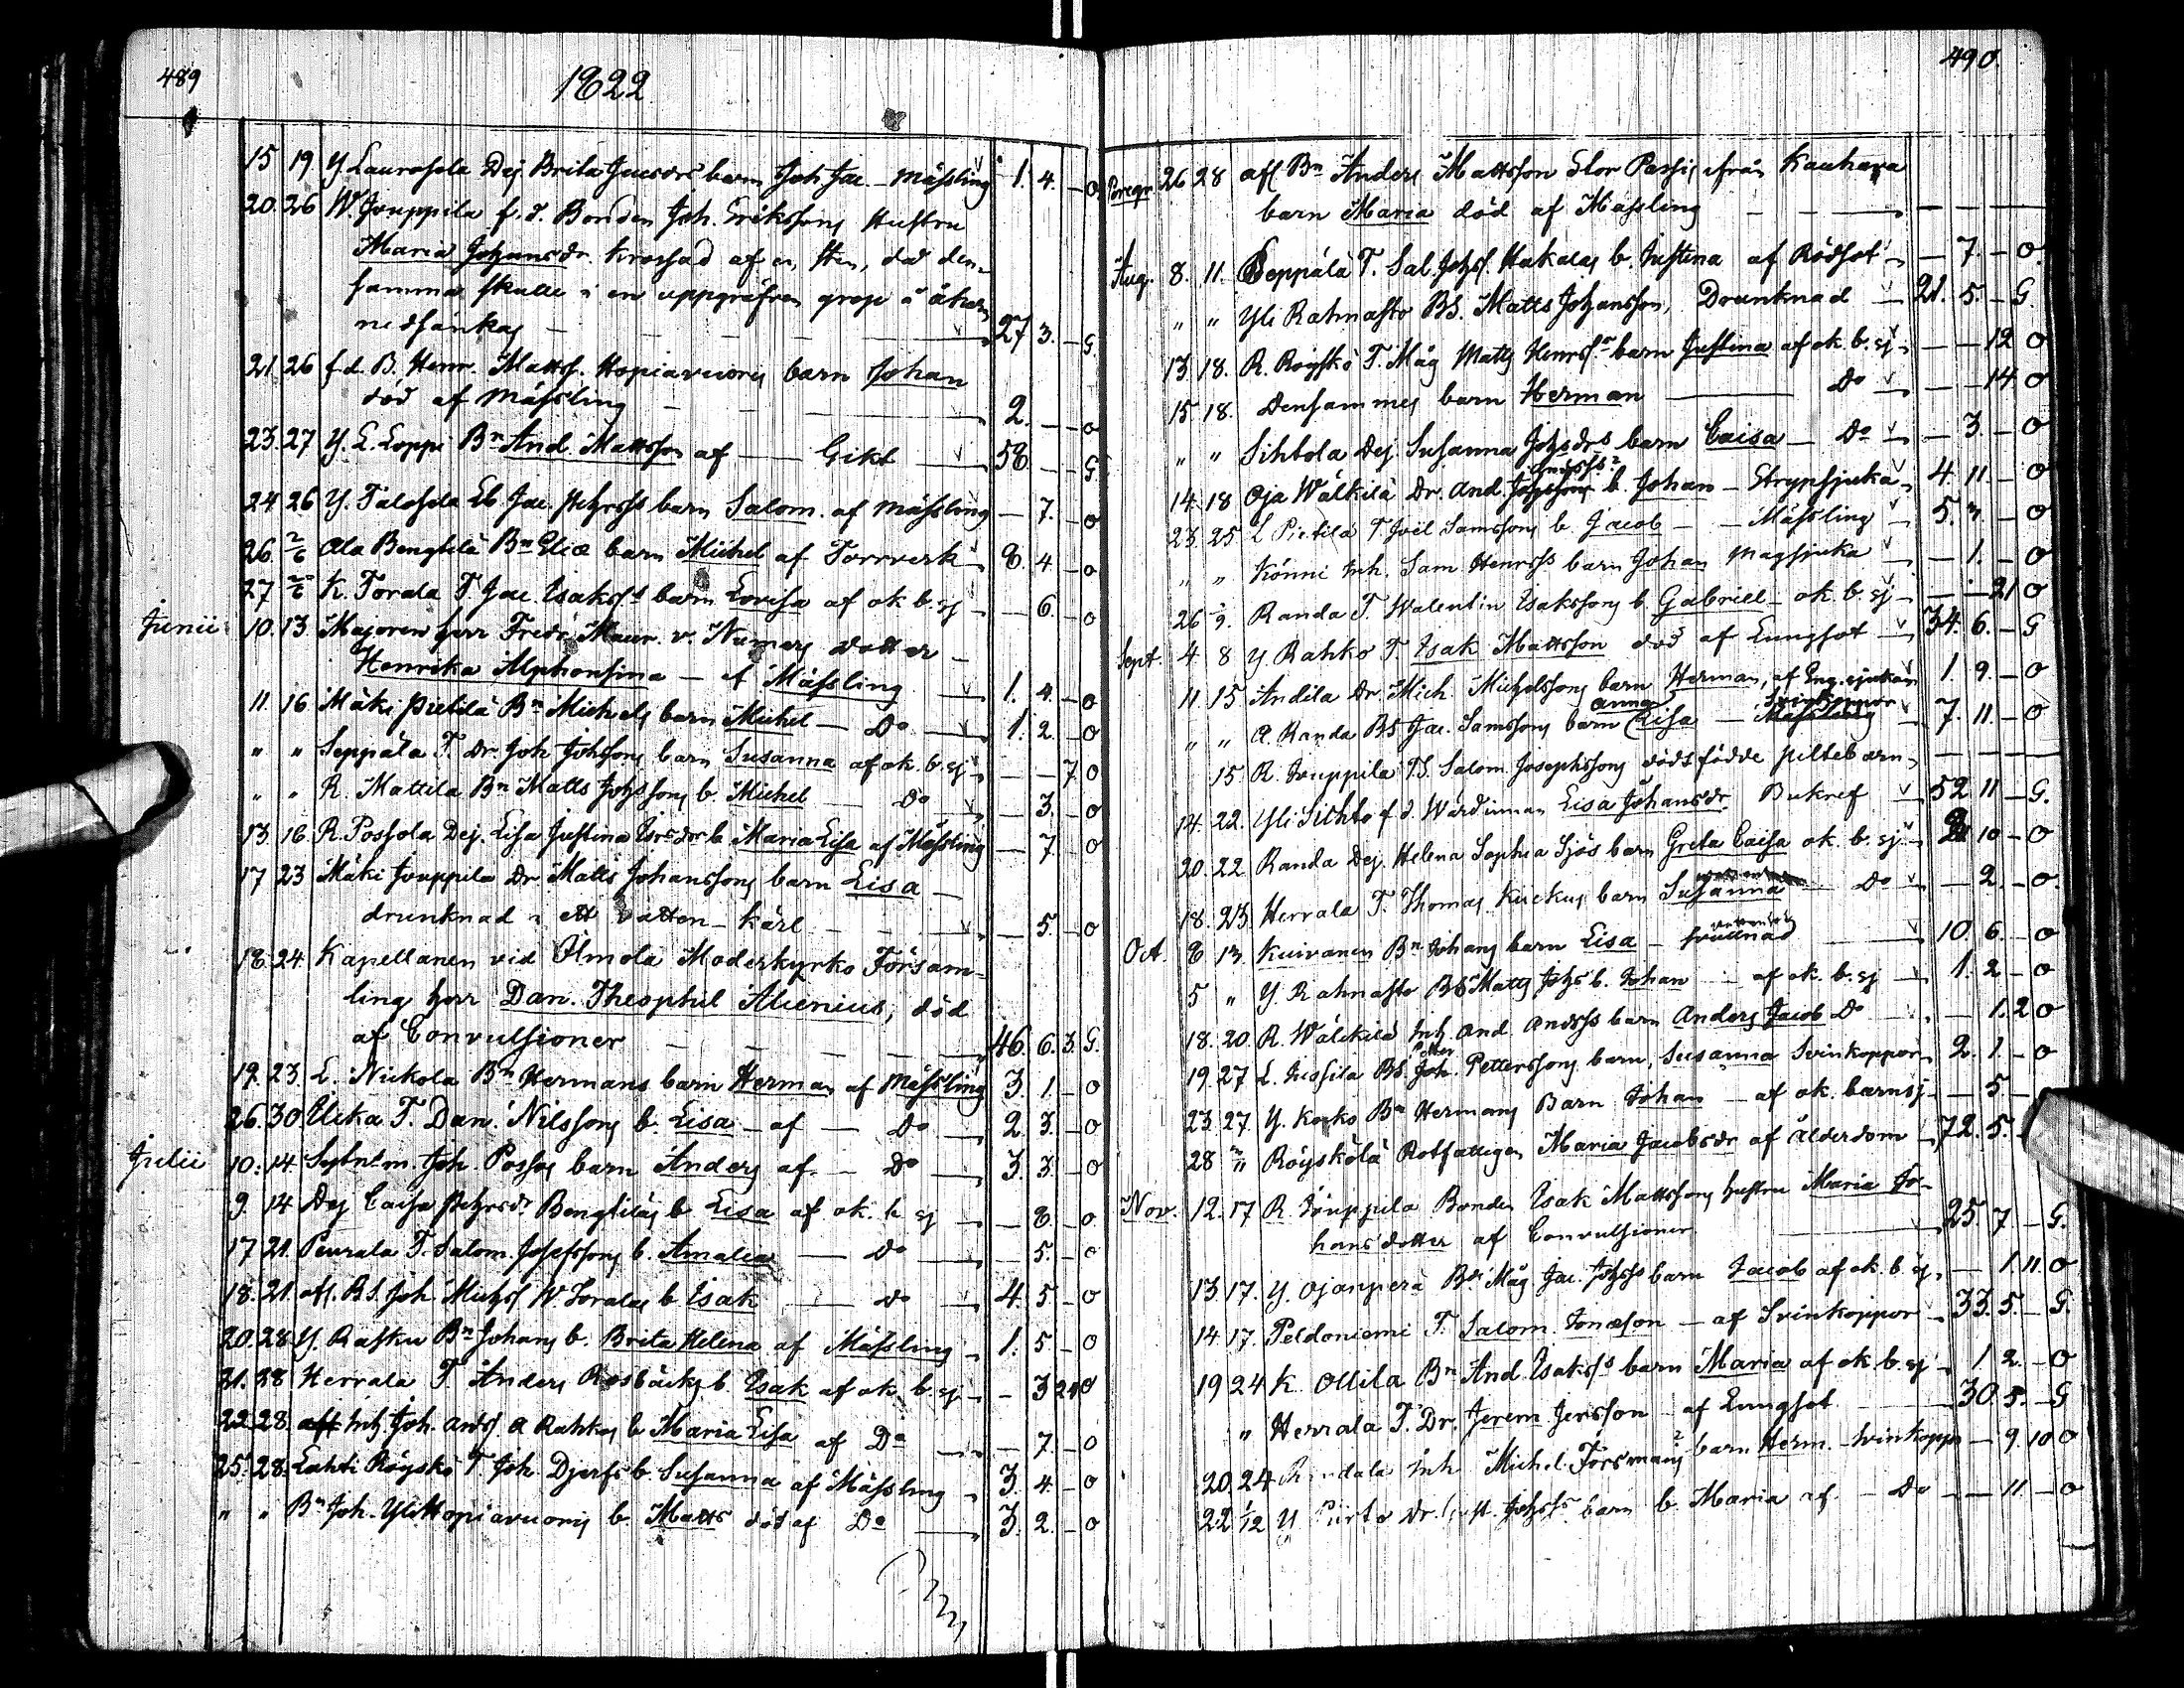 489
1822
15 19 Y Laurosela Dej Brita barn Joh Jac - Mässling 1. 4. - O
20. 26 W. Jouppila f.d. Bonden Joh. Erikssons Hustru
Maria Johansdr. krossad af en sten, då den-
samma skulle i en uppgräfven grop å åkern
nedsänkas - 27 3. - G
21. 26 f.d. B. Henr. Mattss. Hopiavuoris barn Johan
död af Mässling - 2. - - O
23. 27 Y. L. Loppi Bn And. Mattsson af - Gikt - 58 - - G
24 26 Y. barn Salom. af Mässling - 7. - O
26. 2/6 Ala Bengtilä Bn Eliæ barn Michel af Torrverk 8. 4 - O
27 2/6 K. Torala T. Jac. Isakss barn Lovisa af ok. b. sj - 6. - O
Junii 10. 13. Majoren herr Fredr. Maur. v. Numers dotter -
Henrika Alphonsina - af Mässling 1. 4. - O
11. 16 Mäki Pietilä Bn Michels barn Michel - Do 1. 2. - O
" " Seppälä T. Dr. Joh. Johssons barn Susanna af ok. b. sj - - 7 O
" " R. Mattila Bn Matts Johssons b. Michel - Do - 3. - O
13. 16 R. Possola Dej. Lisa Justina b. Maria Lisa af Mässling - 7. - O
17 23 Mäki Jouppila Dr Matts Johanssons barn Lisa -
drunknad i ett vatten-kärl - 5. - O
18. 24. Kapellanen vid Ilmola Moderkyrko Försam-
ling herr Dan. Theophil Alcenius, död
af Convulsioner - 46. 6. 3. G.
19. 23. L. Nickola Bn Hermans barn Herman af Mässling 3. 1. - O
26. 30 T. Dan. Nilssons b. Lisa - af - Do 2. 3. - O
Julii 10. 14 Joh. Possos barn Anders af - Do 3. 3. - O
9. 14 Dej Caisa Bengtiläs b. Lisa af ok. b sj - 8. - O
17 21. Peurala T. Salom. Josefssons b. Amalia - Do - 5. - O
18. 21. afl. BS. Joh. Michss W. Toralas b. Isak - Do 4. 5. - O
20. 28 Y. Rasku Bn Johans b. Brita Helena af Mässling 1. 5. - O
21. 28 Herrala T Anders Rosbäcks b. Isak af ok. b. sj - 3 21 O
22. 28. Inh Joh. Andss A Rahkos b. Maria Lisa af Do - 7. - O
25. 28. Lahti Röyskö T Joh. Djerfs b. Susanna af Mässling 3. 4. - O
" " Bn Joh. Yli Hopiavuoris b. Matts död af Do 3. 2. - O
490
26 28 afl Bn Anders Mattsson ifrån Kauhava
barn Maria död af Mässling - - -
Aug. 8. 11. Seppälä T. Sal. Johss. Hakalas b. Justina af Rödsot - 7. - O.
" " Yli Rahnasto BS. Matts Johansson, Drunknad 21. 5. - G.
13. 18. R. Röyskö T. Måg Matts Henrss barn Justina af ok. b. sj - - 12 O
15. 18. densammes barn Herman - Do - - 14 O
" " Sihtola Dej Susanna Johsdrs barn Caisa - Do - 3. - O
14. 18 Oja Wälkilä Dr. And. b. Johan - Strypsjuka 4. 11. - O
23. 25 L Pietilä T Joel Samssons b. Jacob - Mässling 5. - O
" " Könni Inh. Sam Henrss barn Johan Magsjuka - 1. - O
26 1/9. Randa T. Walentin Isakssons b. Gabriel - ok. b. sj - - 21 O
Sept. 4 8 Y Rahko T. Isak Mattsson död af Lungsot 34. 6. - G
11. 15 Andila Dr Mich. Michelssons barn Herman, af Eng. sjukan 1. 9. - O
Anna Svinkoppor
" " A. Randa BS Jac. Samssons barn Lisa - Mässling 7. 11. - O
" 15. R. Jouppila TS. Salom Josephssons dödsfödde piltebarn
14. 22. Yli Sihto f.d. Wärdinnan Lisa Johansdr. Bukref 52 11 - G.
20. 22 Randa Dej. Helena Sophia Sjös barn Greta Caisa ok. b. sj 10 - O
18. 23. Herrala T. Thomas Kuckus barn Susanna - Do - 2. - O.
Oct. 8 13. Kuivanen Bn Johans barn Lisa - 10. 6. - O
5 " Y. Rahnasto BS Matts Johs b. Johan - af ok. b. sj 1. 2 - O
18. 20. R. Wälkilä Inh. And Andss barn Anders Jacob Do - 1. 2 O
19. 27 L. Jussila BS. Joh. Petterssons barn, Susanna Svinkoppor 2. 1. - O
23. 27. Y. Korko Bn Hermans Barn Johan - af ok. barnsj - 5. -
28 " Röyskölä Rotfattigen Maria Jacobsdr af Ålderdom 72. 5.
Nov. 12. 17 R. Jouppila Bonden Isak Mattssons hustru Maria Jo-
hansdotter af Convulsioner 25. 7 - G.
13. 17. Y. Ojanperä Bds Måg Jac. Johss barn Jacob af ok. b. sj - 1. 11. O
14. 17. Peldoniemi T. Salom. Jonæson - af Svinkoppor 33. 5. - G
19 24 K. Ollila Bn And. Isakss barn Maria af ok. b. sj 1 2. - O
" Herrala T. Dr. Jerem. Jersson - af Lungsot 30. 5. - G
20. 24 Inh Michel Försmans barn Herm. Svinkoppor - 9 10 O
22 1/12 Y Dr. barn b. Maria af - Do - 11 - O